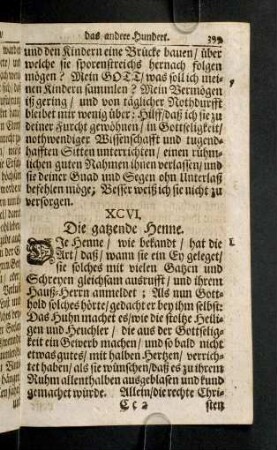 das andere Hundert. 399
und den Kindern eine Brücke bauen/ über
welche sie sporenstreichs hernach folgen
mögen? Mein GOTT/ was soll ich mei-
nen Kindern sammlen? Mein Vermögen
ist gering/ und von täglicher Nothdurfft
bleibet mir wenig über: Hilff/ daß ich sie zu
deiner Furcht gewöhnen/ in Gottseligkeit/
nothwendiger Wissenschafft und tugend-
hafften Sitten unterrichten/ einen rühm-
lichen guten Nahmen ihnen verlassen/ und
sie deiner Gnad und Segen ohn Unterlaß
befehlen möge; Besser weiß ich sie nicht zu
versorgen.
XCVI.
Die gatzende Henne.
DIe Henne/ wie bekandt/ hat die 1.
Art/ daß/ wann sie ein Ey geleget/
sie solches mit vielen Gatzen und
Schreyen gleichsam ausrufft/ und ihrem
Hauß-Herrn anmeldet; Als nun Gott-
hold solches hörte/ gedacht er bey ihm selbst:
Das Huhn machet es/ wie die stoltze Heili-
gen und Heuchler/ die aus der Gottselig-
keit ein Gewerb machen/ und so bald nicht
etwas gutes/ mit halben Hertzen/ verrich-
tet haben/ als sie wünschen/ daß es zu ihrem
Ruhm allenthalben ausgeblasen und kund
gemachet würde. Allein/ die rechte Chri-
Cc 2 sten